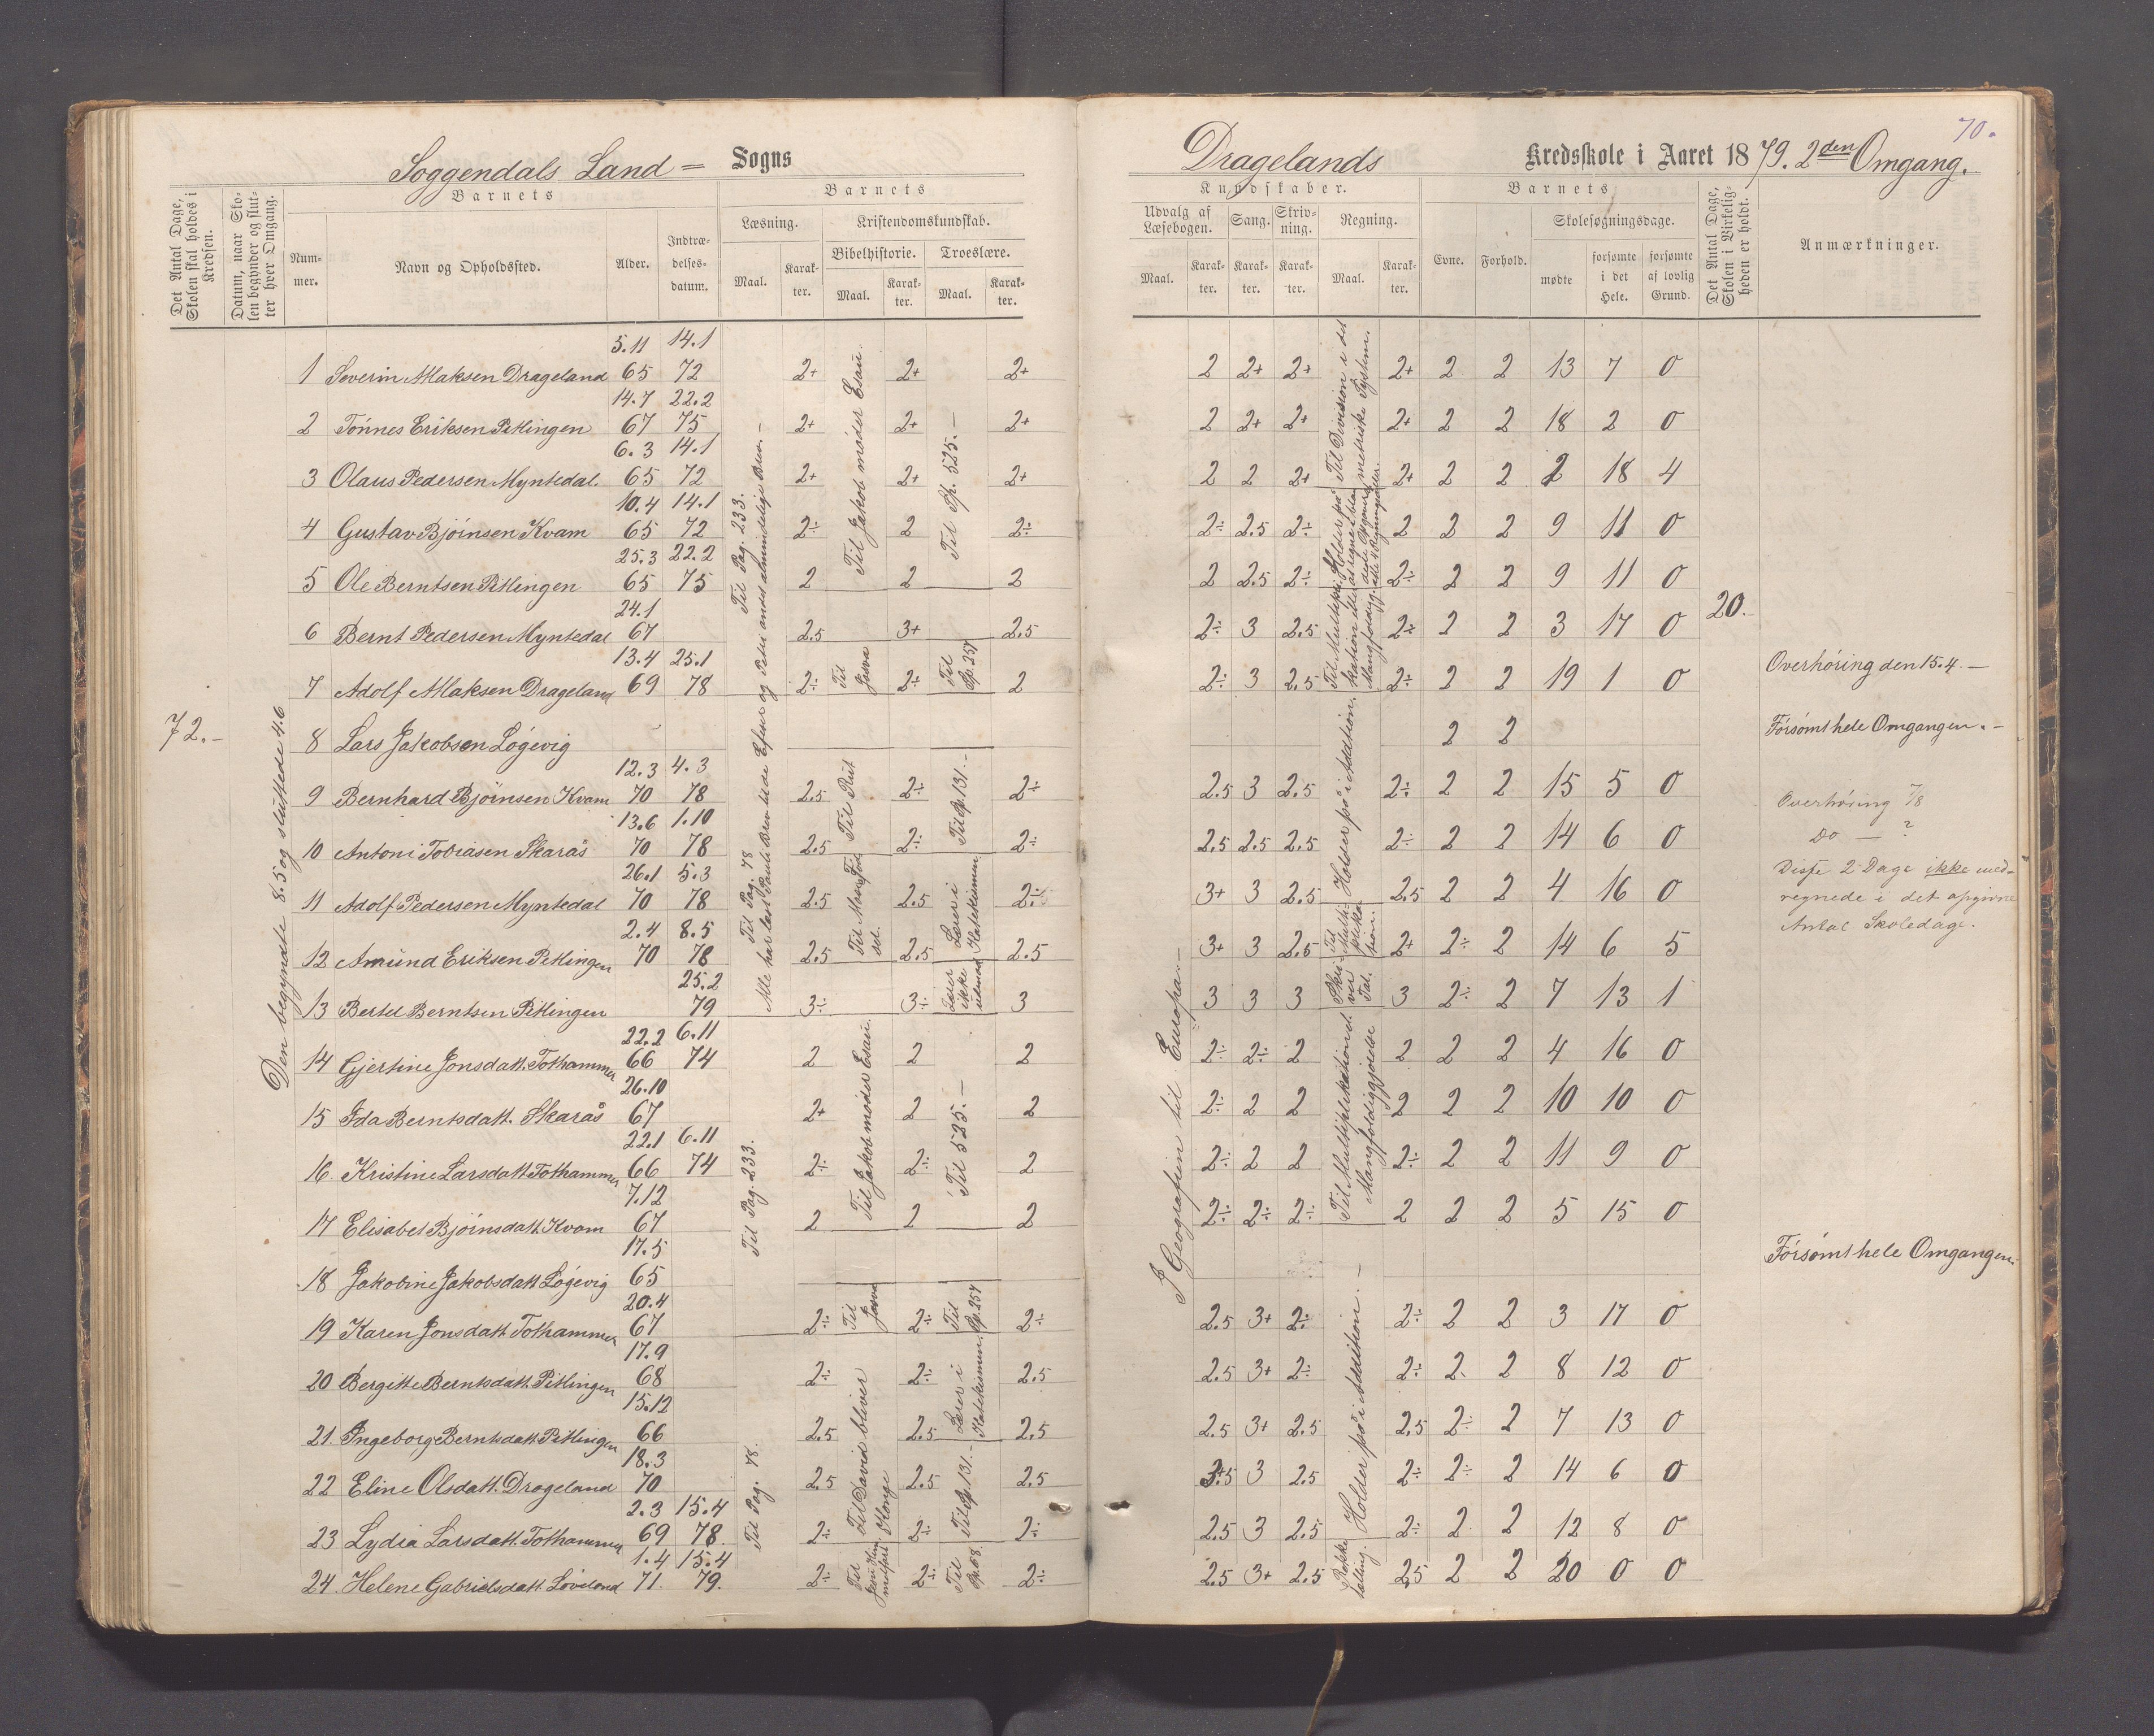 70.
Soggendals Land = Sogns
Dragelands Kredsskole i Aaret 1879. 2den Omgang.
Det Antal Dage, Skolen skal holdes i Kredsen.
Datum, naar Skolen begynder og slutter hver Omgang.
Barnets
Nummer.
Navn og Opholdssted.
Alder.
Indtrædelsesdatum.
Barnets
Læsning.
Maal.
Karakter.
Kristendomskundskab.
Bibelhistorie.
Maal.
Karakter.
Troeslære.
Maal.
Karakter.
Kundskaber.
Udvalg af Læsebogen.
Maal.
Karakter.
Sang.
Karakter.
Skrivning.
Karakter.
Regning.
Maal.
Karakter.
Barnets
Evne.
Forhold.
Skolesøgningsdage.
mødte
forsømte i det Hele.
forsømte af lovlig Grund.
Det Antal Dage, Skolen i Virkeligheden er holdt.
Anmærkninger.
72.-
Den begyndte 8.5 og sluttede 4.6
1 Severin Maksen Drageland 5.11 65 14.1 72 2+ 2+ 2+ 2 2+ 2+ 2+ 2 2 13 7 0
2 Tönnes Eriksen Pitlingen 14.7 67 22.2 75 2+ 2+ 2+ 2 2+ 2+ 2+ 2 2 18 2 0
3 Olaus Pedersen Myntedal 6.3 65 14.1 72 2+ 2+ 2+ 2 2 2+ 2+ 2 2 2 18 4
4 Gustav Bjöinsen Kvam 10.4 65 14.1 72 2÷ 2 2÷ 2÷ 2.5 2÷ 2 2 2 9 11 0
5 Ole Berntsen Pitlingen 25.3 65 22.2 75 2 2 2 2 2.5 2÷ 2÷ 2 2 9 11 0
6 Bernt Pedersen Myntedal 24.1 67 2.5 3+ 2.5 2÷ 3 2.5 2÷ 2 2 3 17 0
7 Adolf Maksen Drageland 13.4 69 25.1 78 2÷ 2÷ 2 2÷ 3 2.5 2÷ 2 2 19 1 0
8 Lars Jakobsen Lögevig 2 2
9 Bernhard Bjöinsen Kvam 12.3 70 4.3 78 2.5 2÷ 2÷ 2.5 3 2.5 2÷ 2 2 15 5 0
10 Antoni Tobiasen Skarås 13.6 70 1.10 78 2.5 2÷ 2÷ 2.5 2.5 2.5 2÷ 2 2 14 6 0
11 Adolf Pedersen Myntedal 26.1 70 5.3 78 2.5 2.5 2÷ 3+ 3 2.5 2.5 2 2 4 16 0
12 Amund Eriksen Pitlingen 2.4 70 8.5 78 2.5 2.5 2.5 3+ 3 2.5 2+ 2÷ 2 14 6 5
13 Bertel Berntsen Pitlingen 25.2 79 3÷ 3÷ 3 3 3 3 3 2÷ 2 7 13 1
14 Gjertine Jonsdatt. Tothammer 22.2 66 6.11 74 2 2 2 2÷ 2÷ 2 2 2 2 4 16 0
15 Ida Berntsdatt. Skarås 26.10 67 2+ 2 2 2÷ 2 2 2 2 2 10 10 0
16 Kristine Larsdatt Tothammer 22.1 66 6.11 74 2÷ 2÷ 2 2÷ 2 2 2÷ 2 2 11 9 0
17 Elisabet Bjöinsdatt. Kvam 7.12 67 2 2 2 2÷ 2÷ 2÷ 2 2 2 5 15 0
18 Jakobine Jakobsdatt Lögevig 17.5 65
19 Karen Jonsdatt. Tothammer 20.4 67 2÷ 2÷ 2÷ 2.5 3+ 2÷ 2÷ 2 2 3 17 0
20 Bergitte Berntsdatt. Pitlingen 17.9 68 2÷ 2÷ 2.5 2.5 3+ 2÷ 2÷ 2 2 8 12 0
21 Ingeborg Berntsdatt. Pitlingen 15.12 66 2.5 2.5 2.5 2.5 3+ 2.5 2.5 2÷ 2 7 13 0
22 Eline Olsdatt. Drageland 18.3 70 2.5 2.5 2.5 3 2.5 2÷ 2÷ 2 14 6 0
23 Lydia Larsdatt. Tothammer 2.3 69 15.4 78 2÷ 2÷ 2÷ 2.5 3 2.5 2÷ 2 2 12 8 0
24 Helene Gabrielsdatt. Löveland 1.4 71. 15.4 79. 2÷ 2÷ 2÷ 2.5 3+ 2.5 2.5 2 2 20 0 0
Til Pag. 233.
Til Pag. 78
Til Pag. 233.
Til Pag. 78.
Til Jakob möder Esau.
Til Josva
Til Rut
Til Jakob möder Esau.
Til Josva
Til David bliver Konge
Til Sp. 525.-
Til Sp. 257
Til Sp. 131.-
Lærer i Katekismen
Lærer ikke udenad
Til 525.-
Til Sp. 257
Lærer i Katekismen.
Til Sp. 131.-
Til Sp. 68.
I Geografien til Europa.-
Til Division i det metriske System.
Holder på i Addition.
Til Multiplikation.
Skriver Tal.
Til Multiplikation d. Mangfoldiggjørelse
Holder på i Addition.-
Rekketælling.
20.-
Overhöring den 15.4.-
Försömt hele Omgangen.-
Overhöring 7/8
Do — ?
Disse 2 Dage ikke medregnede i det opgivne Antal Skoledage.
Försömt hele Omgangen.